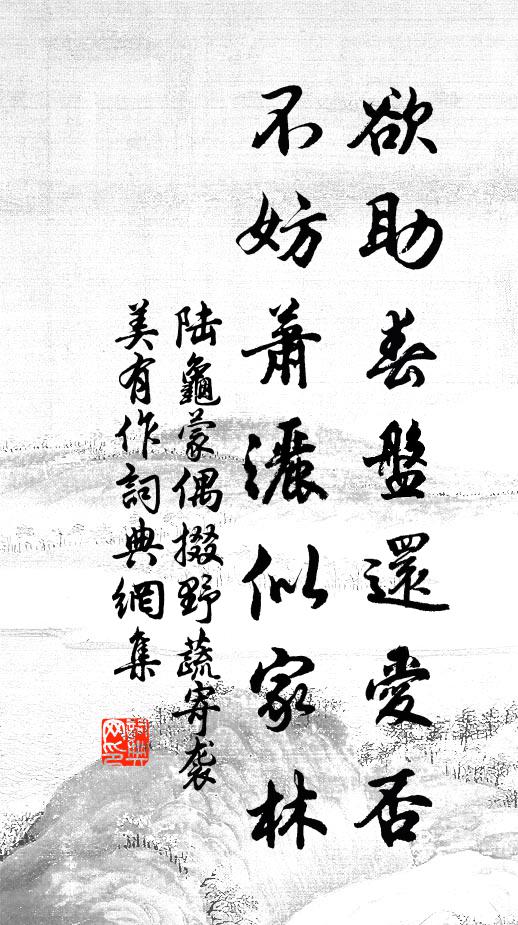 欲助春盤還愛否
不妨蕭灑似家林
陆龜蒙偶掇野蔬寄袭
美有作詞典網集